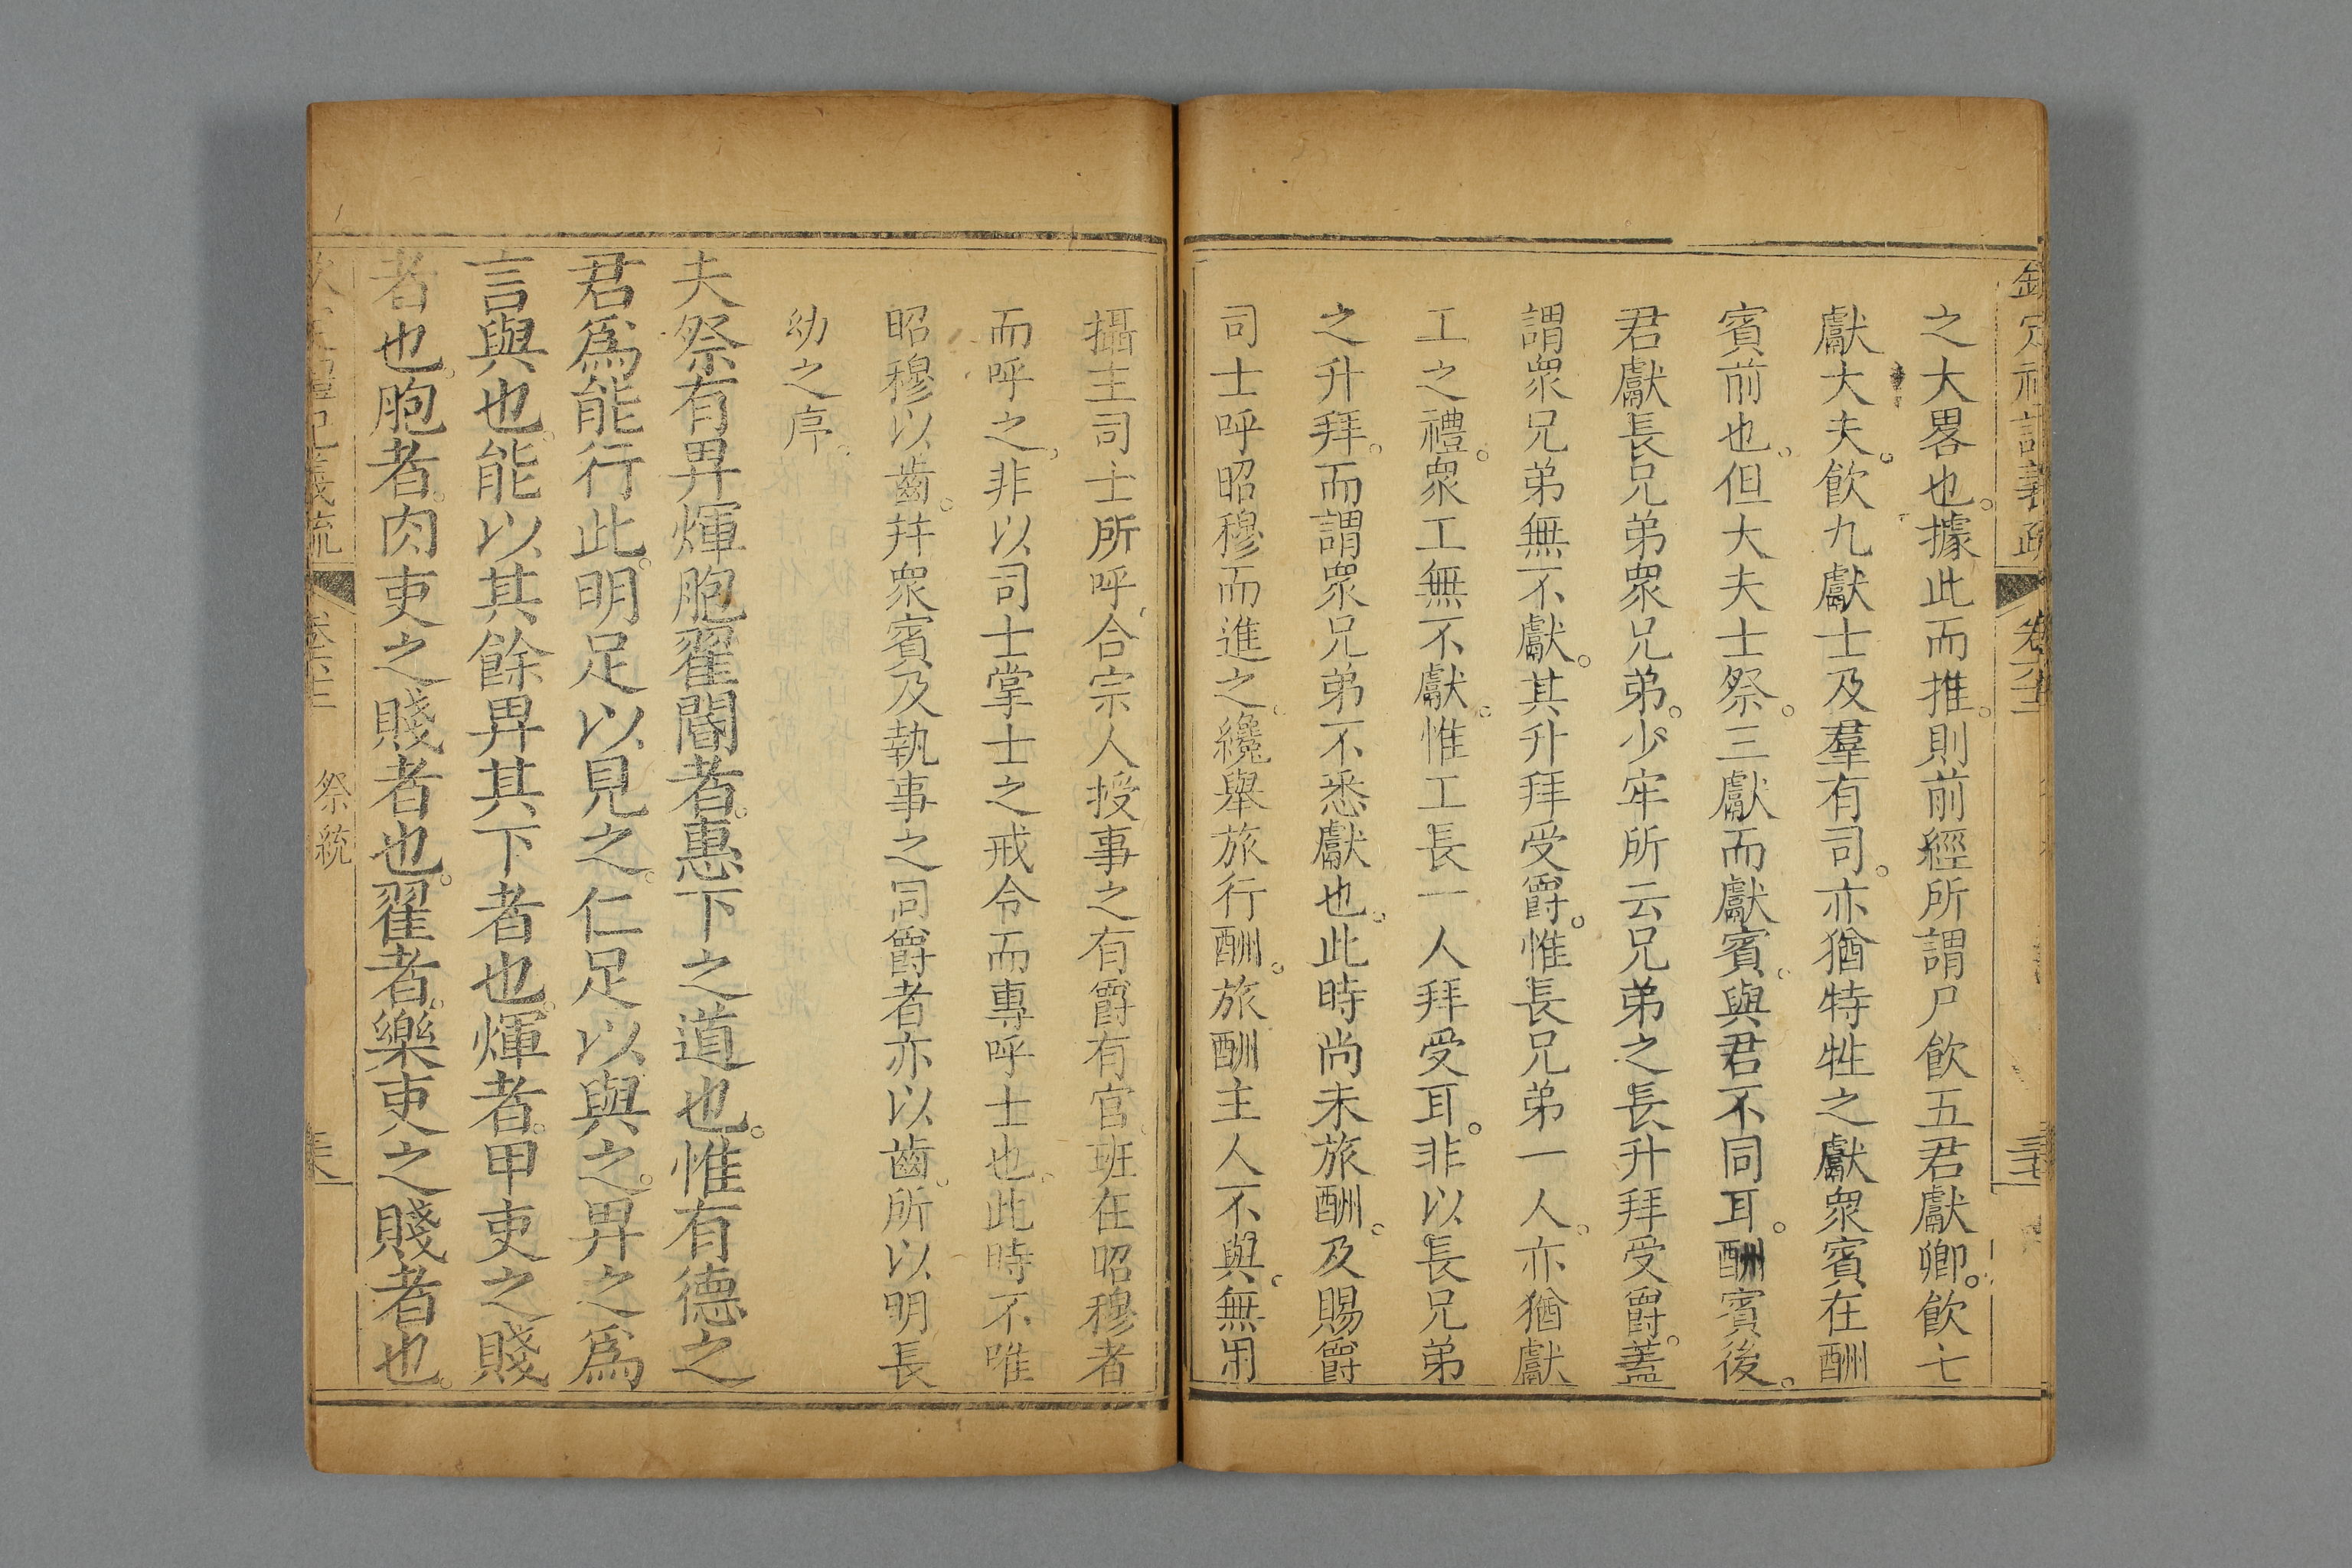 欽定禮記義疏 卷六十三
之大畧也。據此而推。則前經所謂尸飲五君獻卿。飲七
獻大夫。飲九獻士及羣有司。亦猶特牲之獻衆賓在酬
賓前也。但大夫士祭。三獻而獻賓。與君不同耳。酬賓後。
君獻長兄弟衆兄弟。少牢所云兄弟之長升拜受爵。蓋
謂衆兄弟無不獻。其升拜受爵。惟長兄弟一人。亦猶獻
工之禮。衆工無不獻。惟工長一人拜受耳。非以長兄弟
之升拜。而謂衆兄弟不悉獻也。此時尚未旅酬。及賜爵
司士呼昭穆而進之。纔舉旅行酬。旅酬主人不與。無用
攝主司士所呼。合宗人授事之有爵有官。班在昭穆者
而呼之。非以司士掌士之戒令而專呼士也。此時不唯
昭穆以齒。幷衆賓及執事之同爵者亦以齒。所以明長
幼之序。
夫祭有畀煇胞翟閽者。惠下之道也。惟有德之
君爲能行此。明足以見之。仁足以與之。畀之爲
言與也。能以其餘畀其下者也。煇者。甲吏之賤
者也。胞者。肉吏之賤者也。翟者。樂吏之賤者也。
祭統